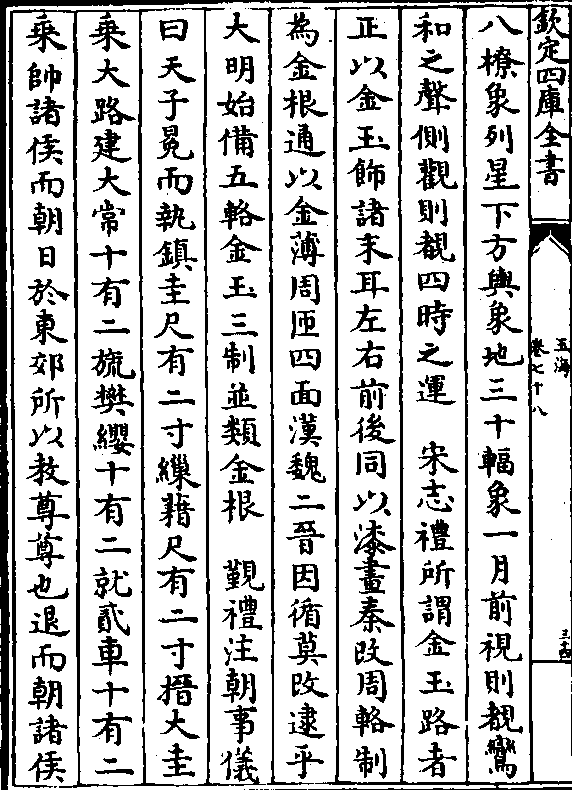 欽定四庫全書
玉海
卷七十八
三十四
八橑象列星下方輿象地三十輻象一月前視則覩鸞
和之聲側觀則覩四時之運　宋志禮所謂金玉路者
正以金玉飾諸末耳左右前後同以漆畫秦改周輅制
為金根通以金薄周匝四面漢魏二晉因循莫改逮乎
大明始備五輅金玉三制並類金根　覲禮注朝事儀
曰天子冕而執鎮圭尺有二寸繅藉尺有二寸搢大圭
乘大路建大常十有二旒樊纓十有二就貳車十有二
乘帥諸侯而朝日於東郊所以教尊尊也退而朝諸侯